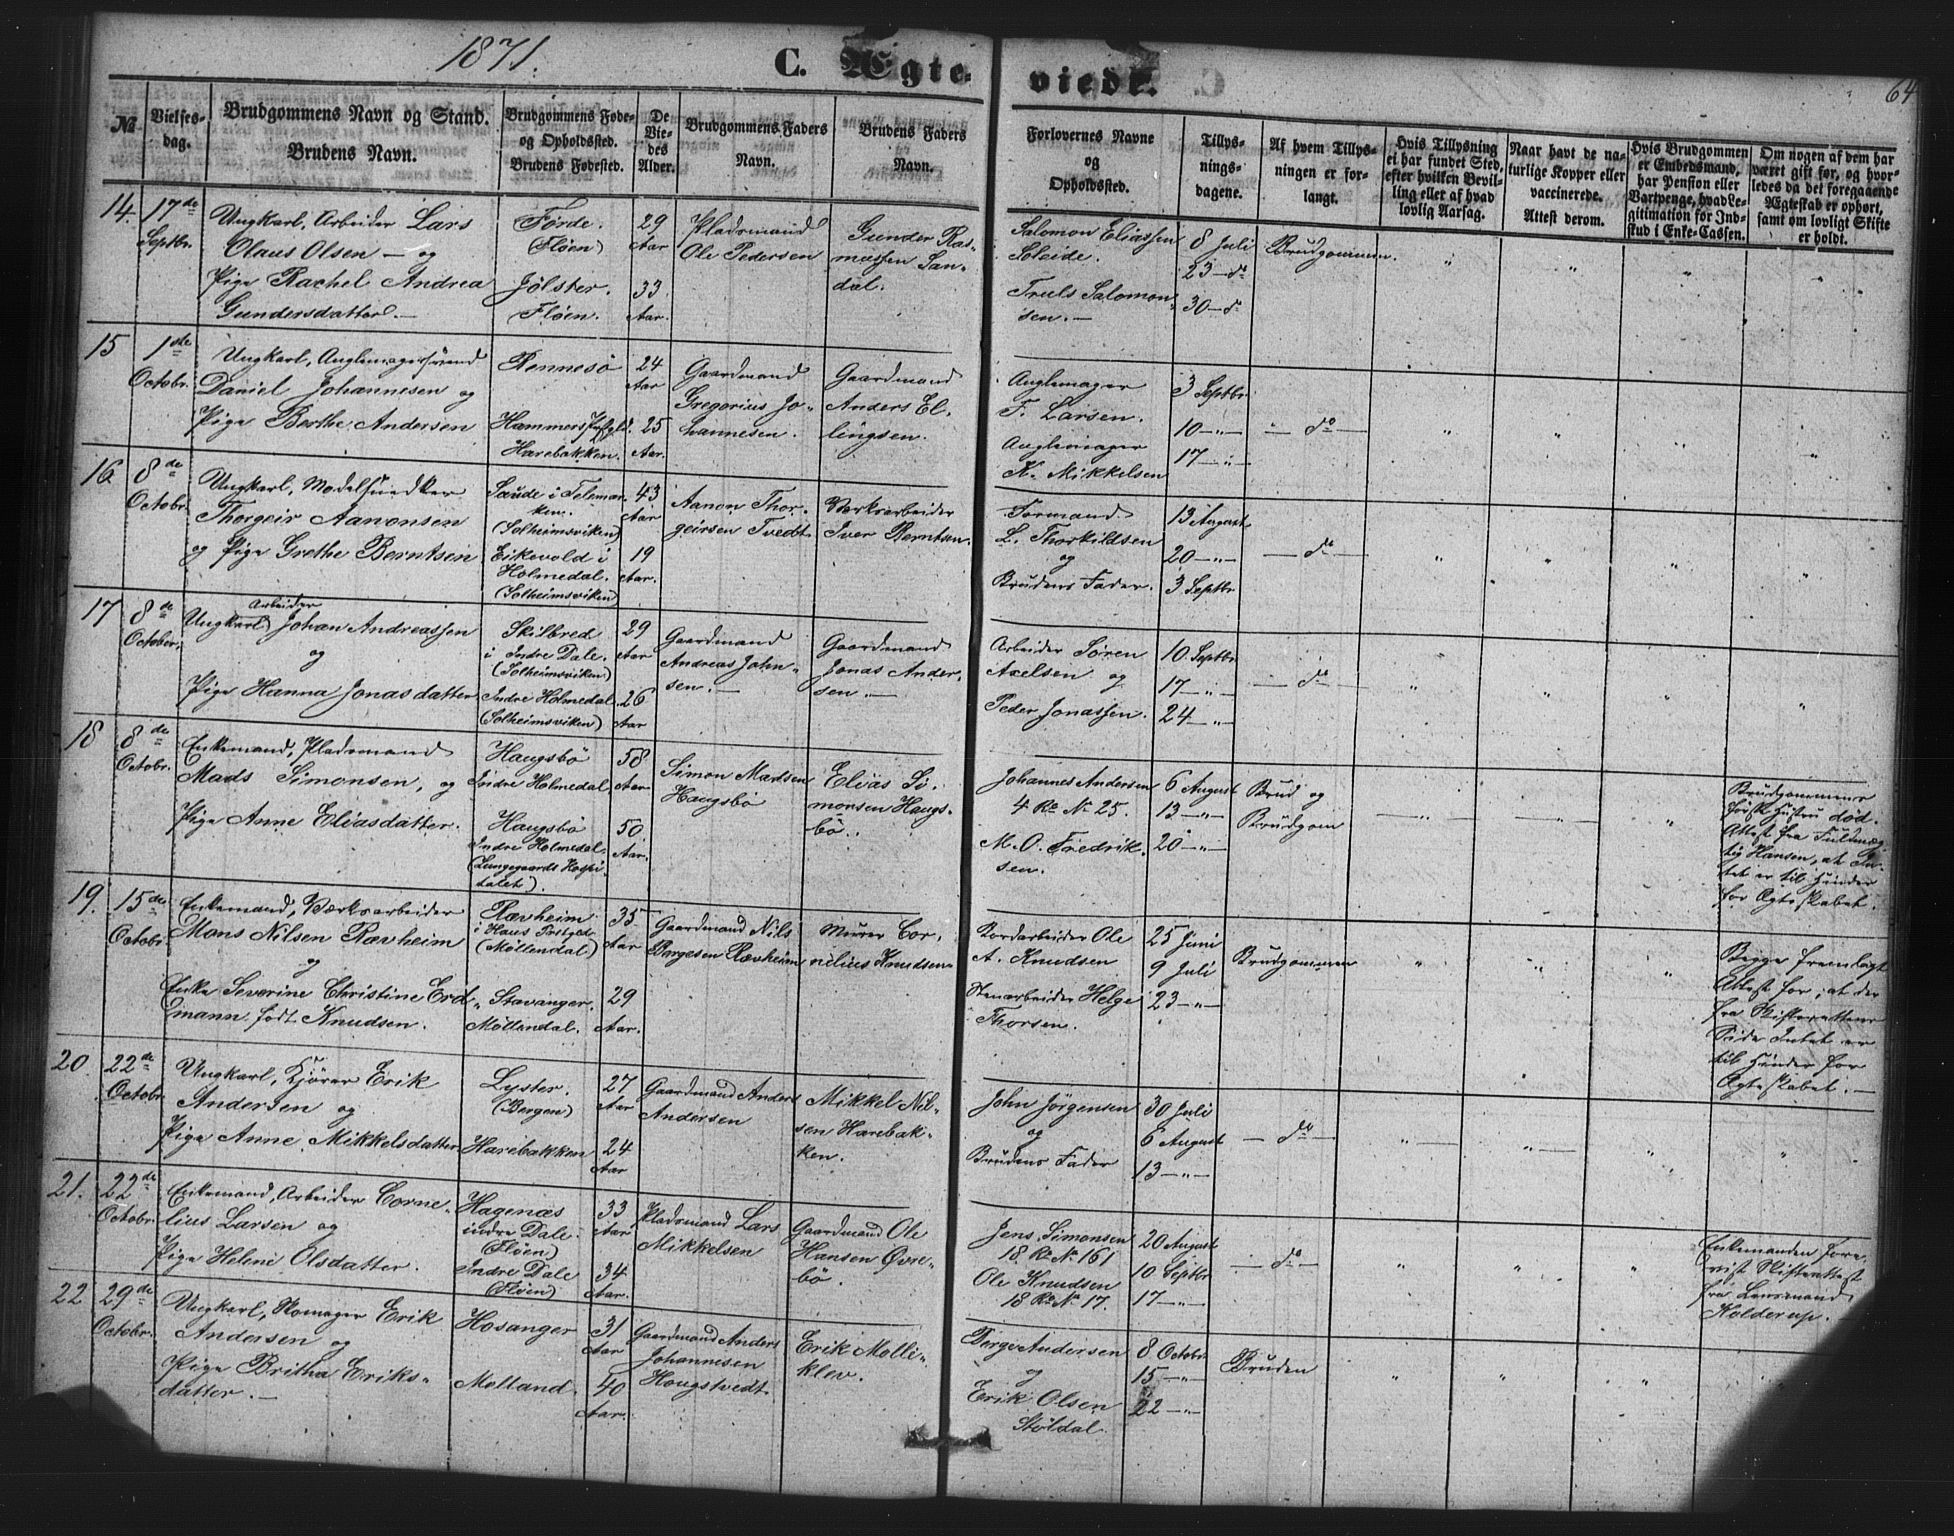 1871.
C. Ægte-
viede.
64
No
Vielses-
dag.
Brudgommens Navn og Stand.
Brudens Navn.
Brudgommens Føde-
og Opholdssted.
Brudens Fødested.
De
Vie-
des
Alder.
Brudgommens Faders
Navn.
Brudens Faders
Navn.
Forlovernes Navne
og
Opholdssted.
Tillys-
nings-
dagene.
Af hvem Tillys-
ningen er for-
langt.
Hvis Tillysning
ei har fundet Sted,
efter hvilken Bevil-
ling eller af hvad
lovlig Aarsag.
Naar havt de na-
turlige Kopper eller
vaccinerede.
Attest derom.
Hvis Brudgommen
er Embedsmand,
har Pension eller
Vartpenge, hvad Le-
gitimation for Ind-
skud i Enke-Cassen.
Om nogen af dem har
været gift før, og hvor-
ledes da det foregaaende
Ægteskab er ophørt,
samt om lovligt Skifte
er holdt.
14. 17de
Septbr.
Ungkarl, Arbeider Lars
Olaus Olsen — og
Pige Rachel Andrea
Gundersdatter. —
Förde.
(Flöen)
Jölster.
Flöen.
29
Aar
33
Aar.
Pladsmand
Ole Pedersen
Gunder Ras-
mussen San-
dal.
Salomon Eliassen
Soleide.
Truls Salomon-
sen. —
8 Juli
23 — do
30 — do
Brudgommen.
" " " "
15 1ste
Octobr.
Ungkarl, Anglemagersvend
Daniel Johannesen og
Pige Berthe Andersen
Rennesö
Hammers Pstgld.
Harebakken.
24
Aar
25
Aar.
Gaardmand
Gregorius Jo-
hannesen.
Gaardmand
Anders El-
lingsen.
Anglemager
F. Larsen.
Anglemager
K. Mikkelsen
3 Septbr
10 — " —
17 — " —
— do —
" " " "
16. 8de
Octobr.
Ungkarl, Modelsnedker
Thorgeir Aanonsen
og Pige Grethe Berntsen
Saude i Telemar-
ken.
(Solheimsviken)
Eikevold i
Holmedal.
(Solheimsviken)
43
Aar
19
Aar.
Aanon Thor-
geirsen Tvedt.
Værksarbeider
Iver Berntsen.
Formand
L. Thorkildsen
og
Brudens Fader.
13 August
20 — " —
3 Septbr
— do —
" " " "
17 8de
October.
Arbeider
Ungkarl Johan Andreassen
og
Pige Hanna Jonasdatter
Skilbred
i Indre Dale.
(Solheimsviken)
Indre Holmedal
(Solheimsviken)
29
Aar
26
Aar
Gaardmand
Andreas John-
sen. —
Gaardmand
Jonas Ander-
sen. —
Arbeider Sören
Axelsen og
Peder Jonassen.
10. Septbr
17 — " —
24 — " —
— do —
" " " "
18 8de
Octobr.
Enkemand, Pladsmand
Mads Simonsen, og
Pige Anne Eliasdatter.
Haugsbö
Indre Holmedal
Haugsbö
Indre Holmedal.
(Lungegaards Hospi-
talet).
58
Aar
50.
Aar.
Simon Madsen
Haugsbö
Elias Si-
monsen Haugs-
bö.
Johannes Andersen
4 Ro No 25.
M. O. Fredrik-
sen.
6 August
13 — " —
20 — " —
Brud og
Brudgom
— " — — " — "
Brudgommens
förste Hustru död.
Attest fra Fuldmæg-
tig Hansen, at In-
tet er til Hinder
for Ægteskabet.
19. 15de
Octobr.
Enkemand, Værksarbeider
Mons Nilsen Rævheim
og
Enke Severine Christine Erd-
mann født Knudsen.
Rævheim
i Haus Prstgd.
(Möllendal)
Stavanger.
Möllendal.
35
Aar
29
Aar.
Gaardmand Nils
Børgesen Rævheim
Murer Cor-
nelius Knudsen
Bordarbeider Ole
A. Knudsen
Stenarbeider Helge
Thorsen.
25 Juni
9 Juli
23 — " —
Brudgommen
" " "
Begge fremlagt
Attest for, at der
fra Skifterettens
Side Intet er
til Hinder for
Ægteskabet. —
20. 22de
Octobr.
Ungkarl, Kjörer Erik
Andersen og
Pige Anne Mikkelsdatter
Lyster.
(Bergen)
Harebakken
27
Aar
24
Aar
Gaardmand Anders
Andersen
Mikkel Nil-
sen Harebak-
ken.
John Jörgensen
og
Brudens Fader
30 Juli
6 August
13 — " —
— do —
— " — — " — " "
21. 22de
Octobr.
Enkemand, Arbeider Corne-
lius Larsen og
Pige Helene Olsdatter.
Hagenæs
indre Dale.
(Flöen)
Indre Dale
(Flöen)
33
Aar
34
Aar.
Pladsmand Lars
Mikkelsen
Gaardmand Ole
Hansen Øvre-
bö.
Jens Simonsen
18 Ro No 161
Ole Knudsen
18 Ro No 17.
20 August
10 Septbr
17 — " —
— do —
" " "
Enkemanden fore-
vist Skifteattest
fra Lensmand
Holderup. —
22 29de
Octobr.
Ungkarl, Skomager Erik
Andersen og
Pige Britha Eriks-
datter. —
Hosanger
Molland.
31
Aar
40
Aar.
Gaardmand Anders
Johannesen
Hougstvedt.
Erik Molli-
klev.
Børge Andersen
og
Erik Olsen
Stöldal.
8 Octobr.
15 — " —
22 — " —
Bruden
" " " "